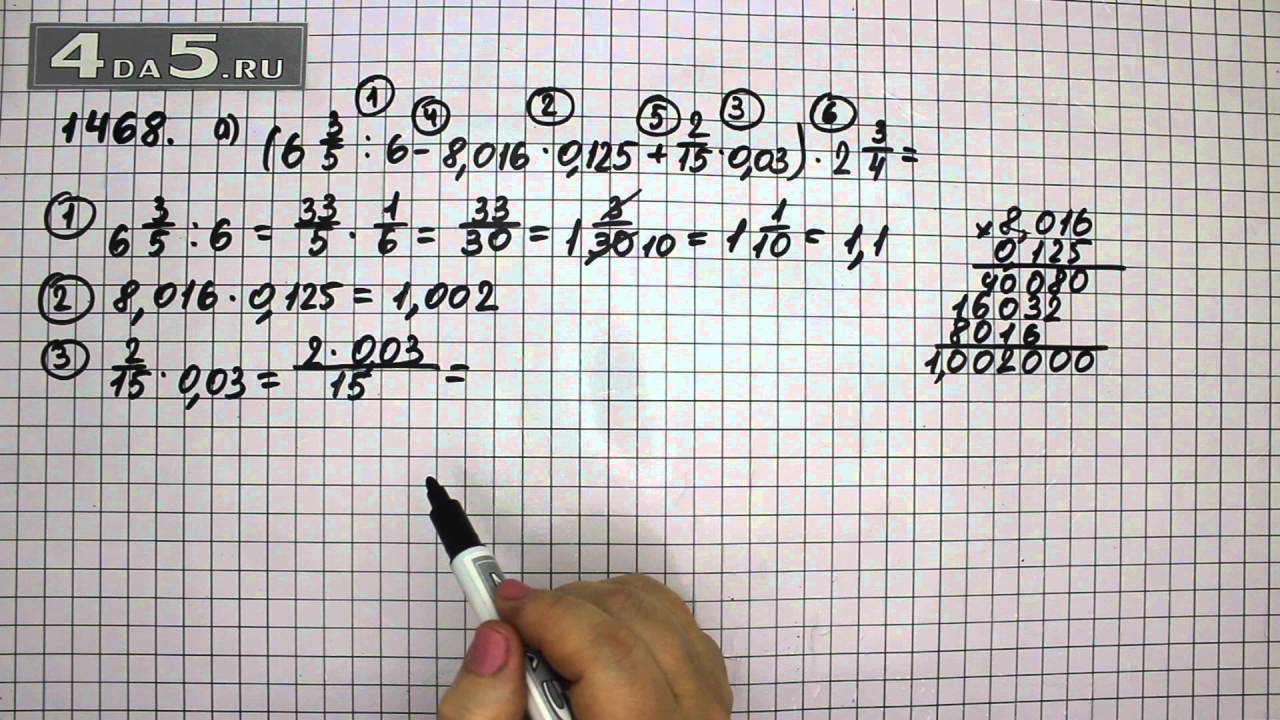 4DA5.RU
① ④ ② ⑤ ③ ⑥
1468. а) (6 3/5 : 6 - 8,016 · 0,125 + 2/15 · 0,03) · 2 3/4 =
① 6 3/5 : 6 = 33/5 · 1/6 = 33/30 = 1 3/30 10 = 1 1/10 = 1,1
② 8,016 · 0,125 = 1,002
③ 2/15 · 0,03 = 2 · 0,03/15 =
× 8,016
0,125
40080
16032
8016
1,002000